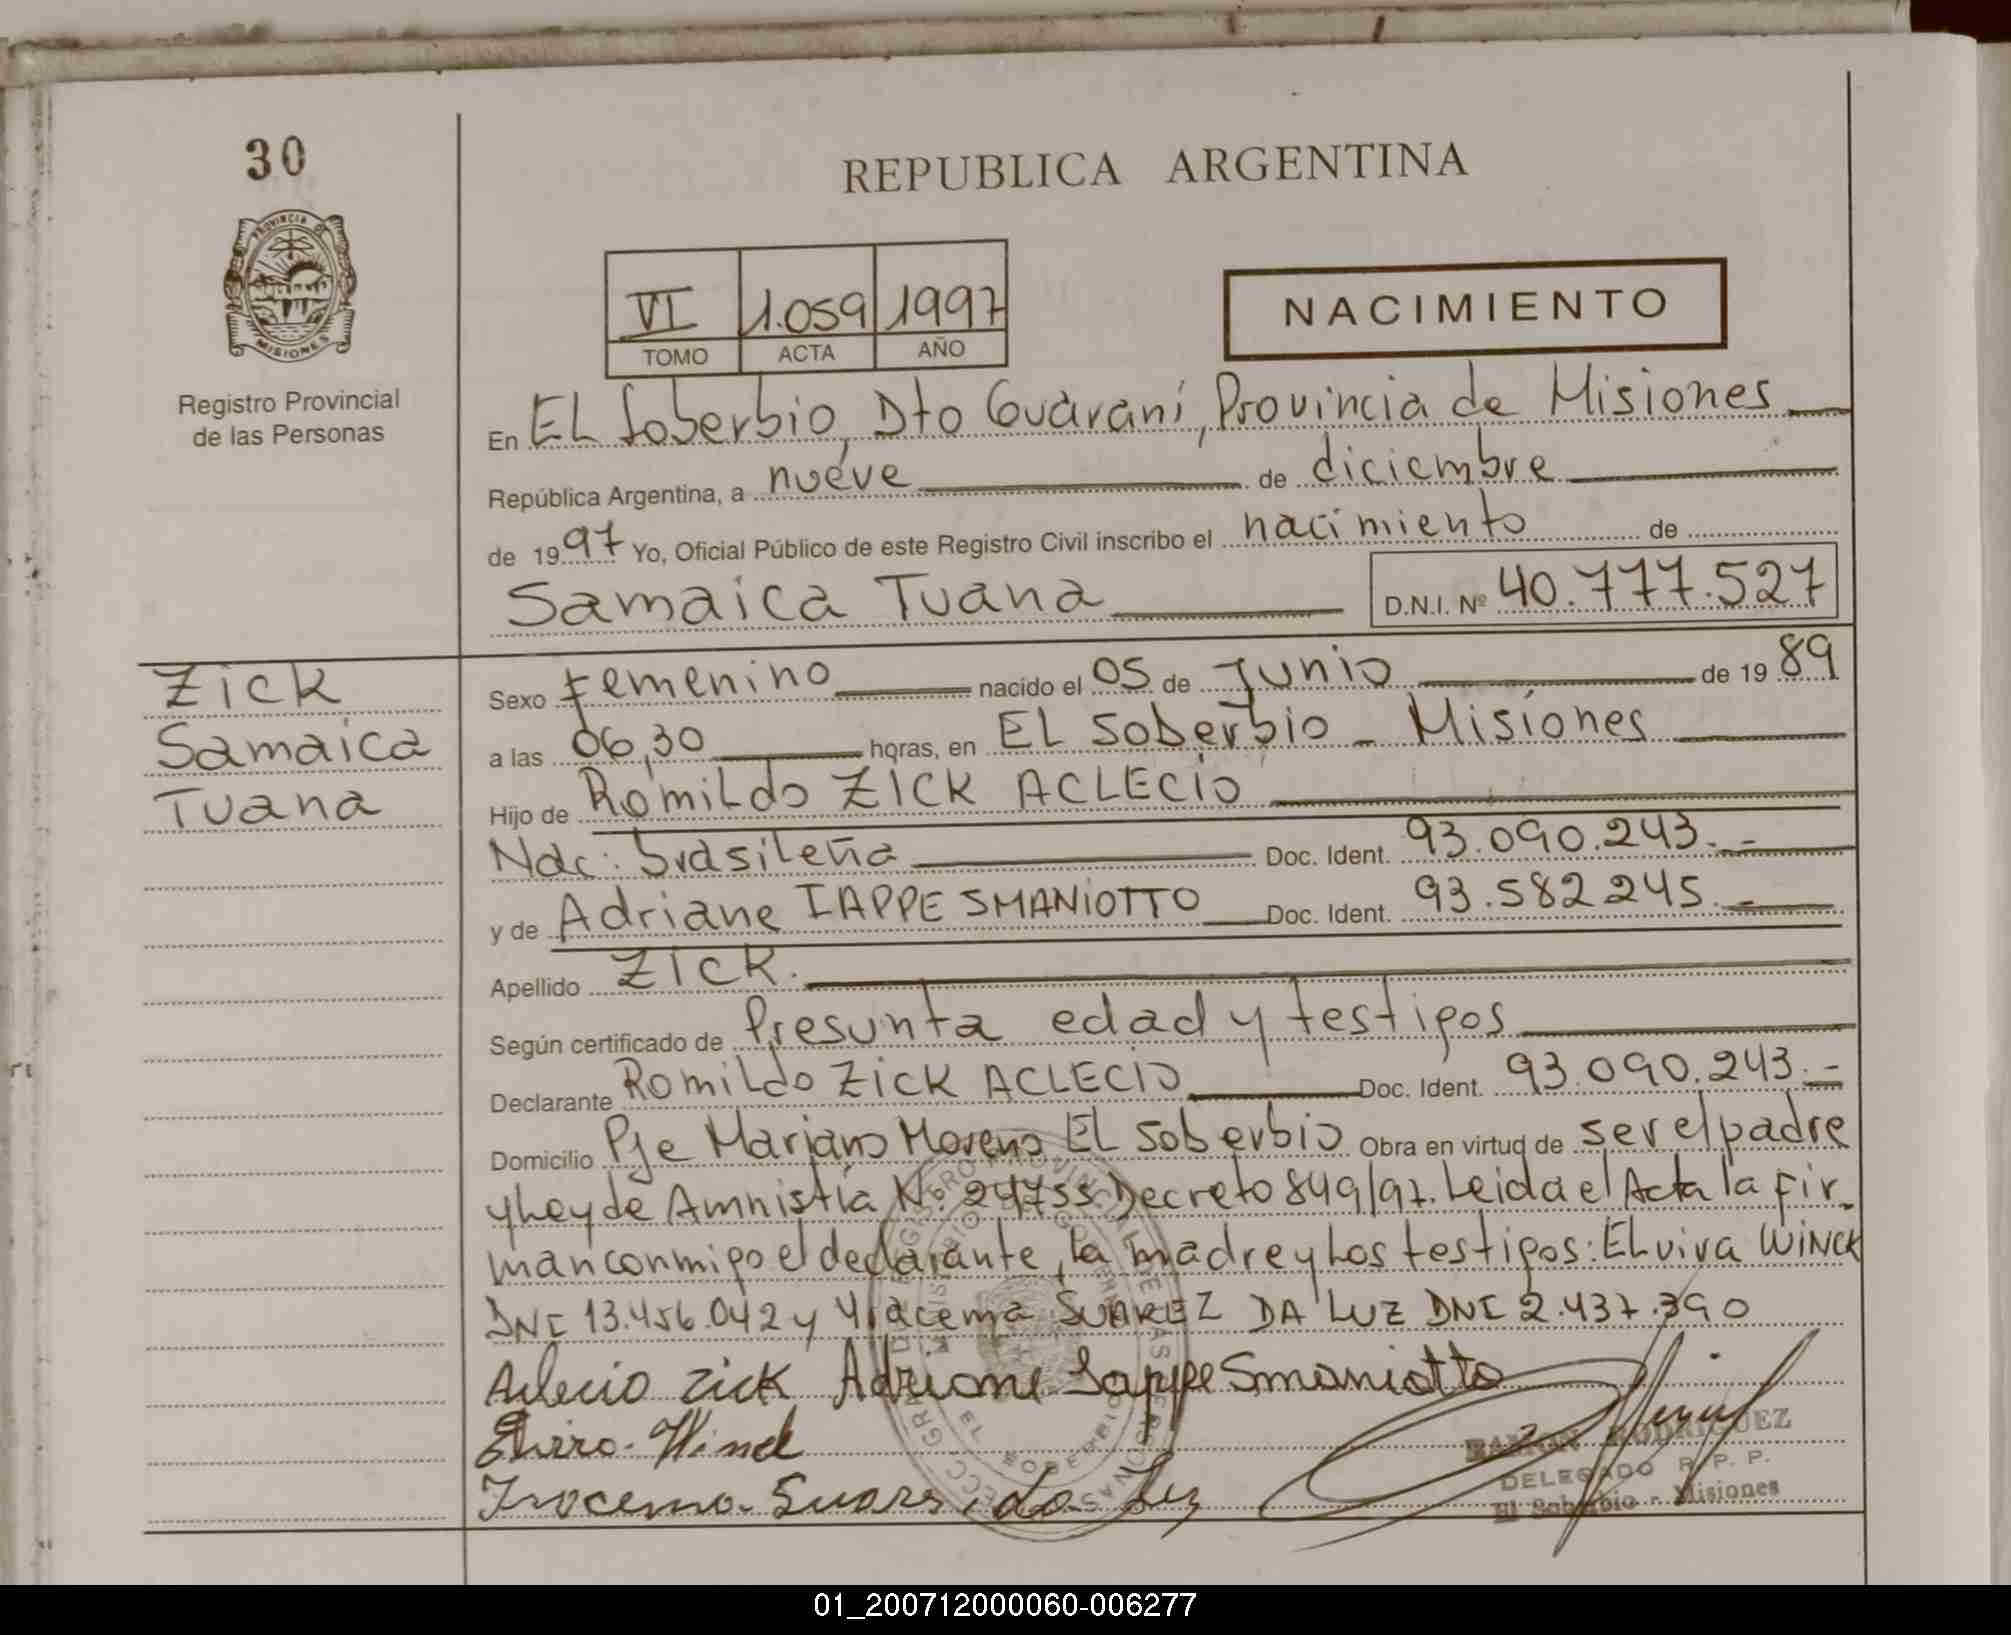 30
REPUBLICA ARGENTINA
PROVINCIA DE
MISIONES
Registro Provincial
de las Personas
VI 1.059 1997
TOMO ACTA AÑO
NACIMIENTO
En EL Soberbio, Dto Guaraní, Provincia de Misiones
República Argentina, a nueve de diciembre
de 1997 Yo, Oficial Público de este Registro Civil inscribo el nacimiento de
Samaica Tuana D.N.I. Nº 40.777.527
Zick
Samaica
Tuana
Sexo femenino nacido el 05 de Junio de 19 89
a las 06,30 horas, en EL Soberbio - Misiones
Hijo de Romildo ZICK ACLECIO
Nac: brasileña Doc. Ident. 93.090.243.-
y de Adriane IAPPE SMANIOTTO Doc. Ident. 93.582245.-
Apellido ZICK.
Según certificado de Presunta edad y testigos
Declarante Romildo ZICK ACLECIO Doc. Ident. 93.090.243.-
Domicilio Pje Mariano Moreno EL Soberbio Obra en virtud de ser el padre
y Ley de Amnistía Nº 24755 Decreto 849/97. Leida el Acta la fir-
man conmigo el declarante, la madre y Los testigos: ELvira WINCK
DNI 13.456.042 y Yracema SUAREZ DA LUZ DNI 2.437.390
Aclecio Zick Adriane Iappe Smaniotto
Winck
RAMON RODRIGUEZ
DELEGADO R. P. P.
El Soberbio - Misiones
01_200712000060-006277